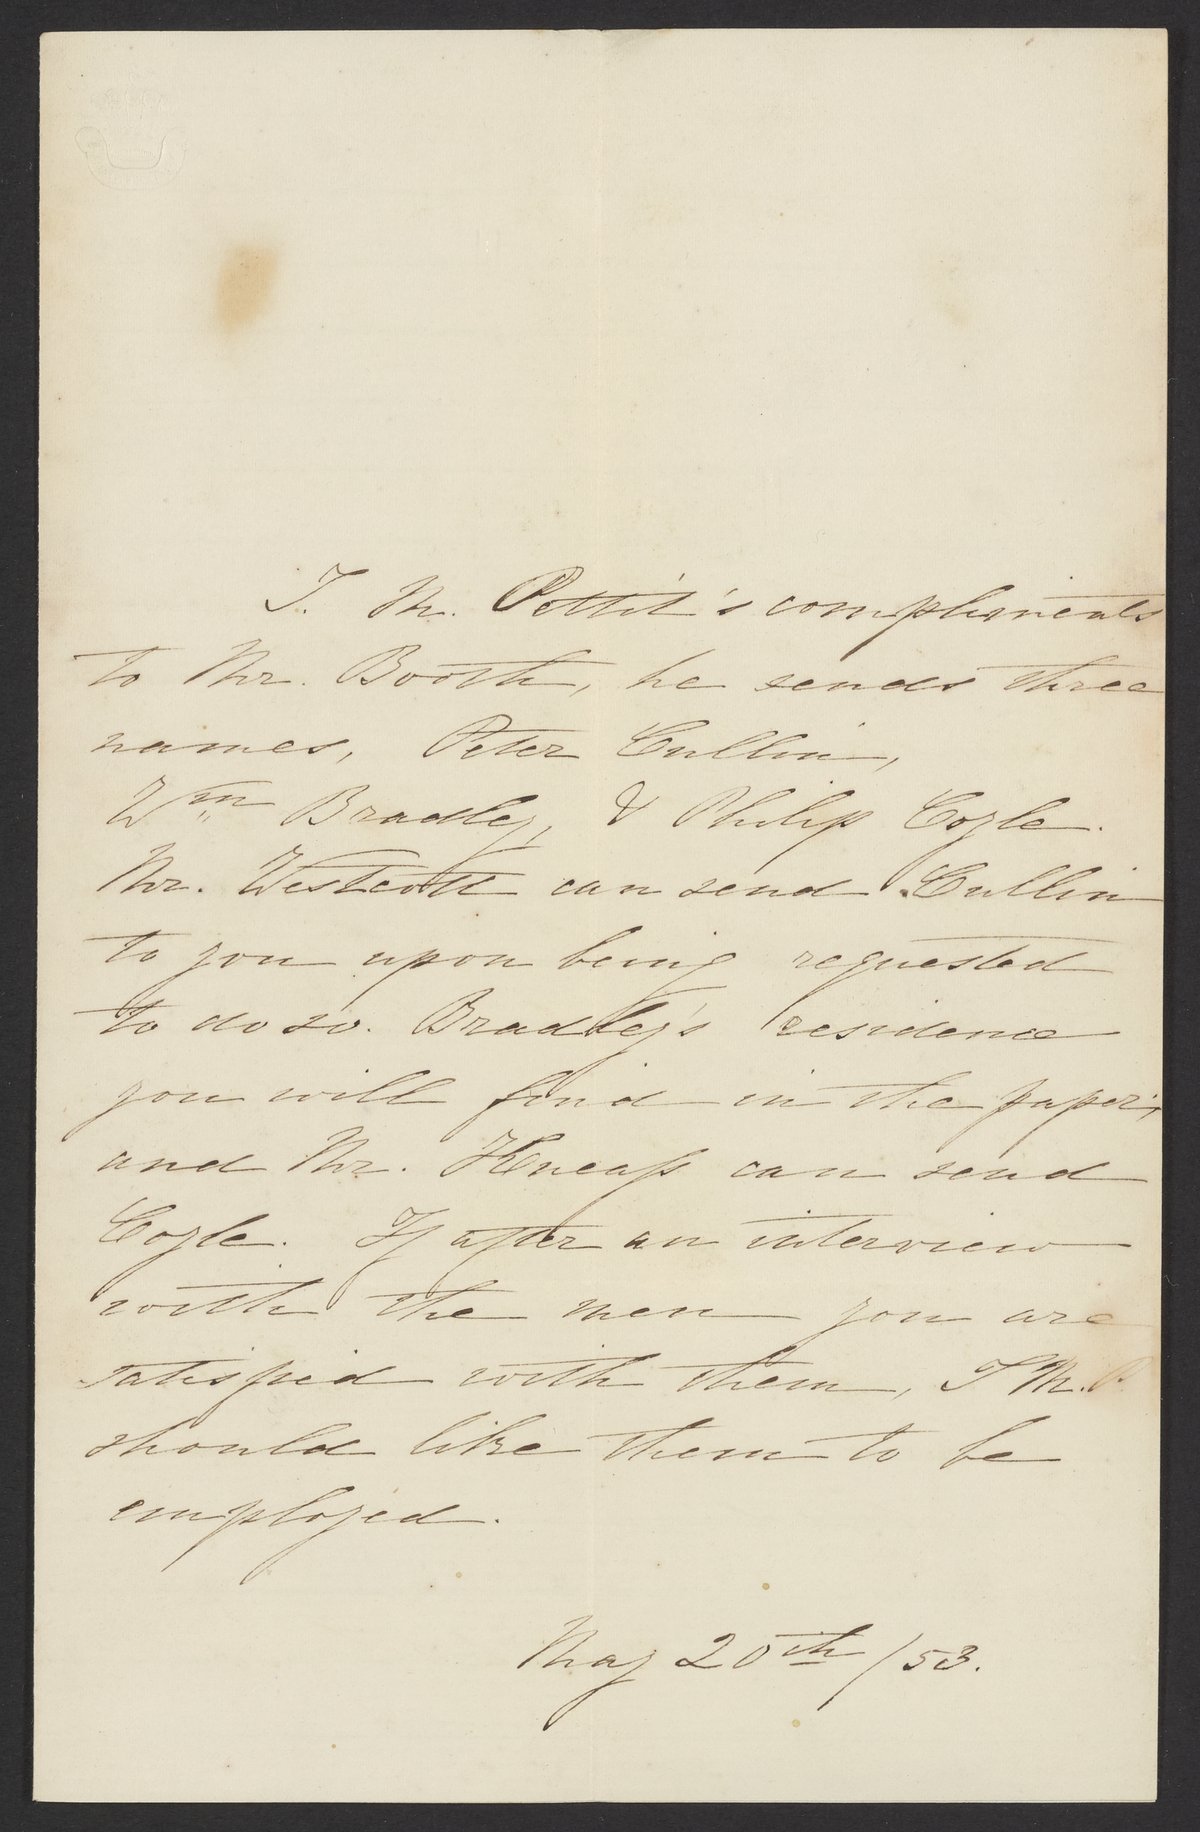 T. M. Pettit's compliments
to Mr. Booth, he sends three
names, Peter Cullin,
Wm Bradley, & Philip Coyle.
Mr. Westcott can send Cullin
to you upon being requested
to do so. Bradley's residence
you will find in the paper,
and Mr. Kneass can send
Coyle. If after an interview
with the men you are
satisfied with them, T M. P.
should like them to be
employed.
May 20th /53.